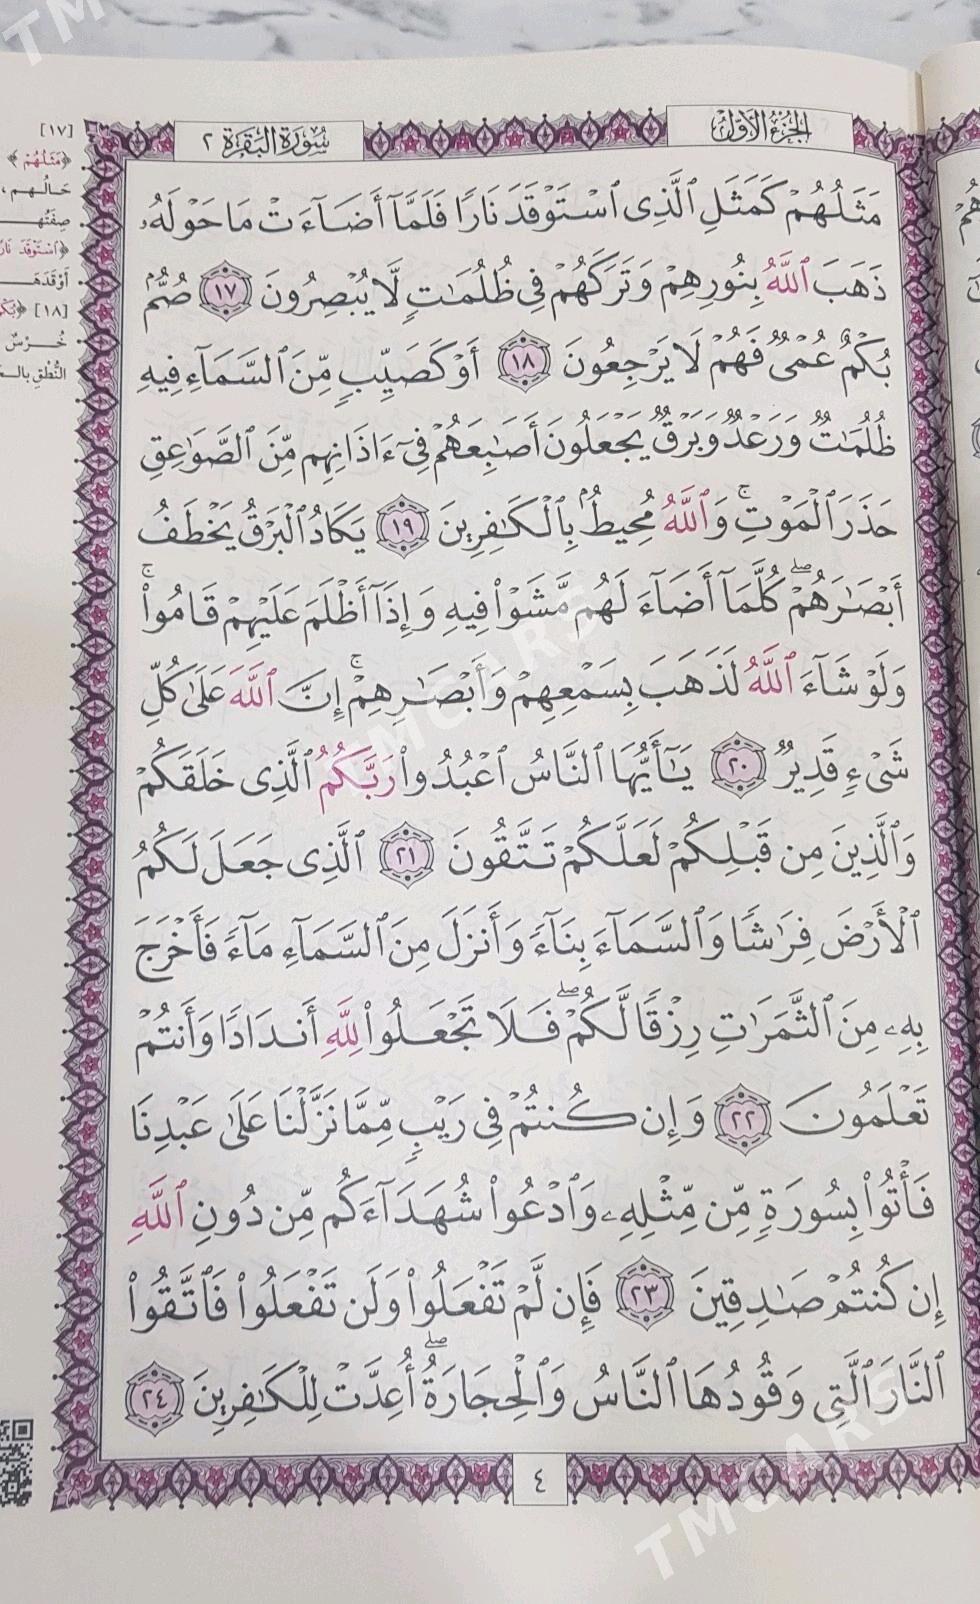 الجزء الأول
سورة البقرة ٢
مَثَلُهُمْ كَمَثَلِ ٱلَّذِى ٱسْتَوْقَدَ نَارًا فَلَمَّآ أَضَآءَتْ مَا حَوْلَهُۥ
ذَهَبَ ٱللَّهُ بِنُورِهِمْ وَتَرَكَهُمْ فِى ظُلُمَٰتٍ لَّا يُبْصِرُونَ ١٧ صُمٌّۢ
بُكْمٌ عُمْىٌ فَهُمْ لَا يَرْجِعُونَ ١٨ أَوْ كَصَيِّبٍ مِّنَ ٱلسَّمَآءِ فِيهِ
ظُلُمَٰتٌ وَرَعْدٌ وَبَرْقٌ يَجْعَلُونَ أَصَٰبِعَهُمْ فِىٓ ءَاذَانِهِم مِّنَ ٱلصَّوَٰعِقِ
حَذَرَ ٱلْمَوْتِ ۚ وَٱللَّهُ مُحِيطٌۢ بِٱلْكَٰفِرِينَ ١٩ يَكَادُ ٱلْبَرْقُ يَخْطَفُ
أَبْصَٰرَهُمْ ۖ كُلَّمَآ أَضَآءَ لَهُم مَّشَوْا۟ فِيهِ وَإِذَآ أَظْلَمَ عَلَيْهِمْ قَامُوا۟ ۚ
وَلَوْ شَآءَ ٱللَّهُ لَذَهَبَ بِسَمْعِهِمْ وَأَبْصَٰرِهِمْ ۚ إِنَّ ٱللَّهَ عَلَىٰ كُلِّ
شَىْءٍ قَدِيرٌ ٢٠ يَٰٓأَيُّهَا ٱلنَّاسُ ٱعْبُدُوا۟ رَبَّكُمُ ٱلَّذِى خَلَقَكُمْ
وَٱلَّذِينَ مِن قَبْلِكُمْ لَعَلَّكُمْ تَتَّقُونَ ٢١ ٱلَّذِى جَعَلَ لَكُمُ
ٱلْأَرْضَ فِرَٰشًا وَٱلسَّمَآءَ بِنَآءً وَأَنزَلَ مِنَ ٱلسَّمَآءِ مَآءً فَأَخْرَجَ
بِهِۦ مِنَ ٱلثَّمَرَٰتِ رِزْقًا لَّكُمْ ۖ فَلَا تَجْعَلُوا۟ لِلَّهِ أَندَادًا وَأَنتُمْ
تَعْلَمُونَ ٢٢ وَإِن كُنتُمْ فِى رَيْبٍ مِّمَّا نَزَّلْنَا عَلَىٰ عَبْدِنَا
فَأْتُوا۟ بِسُورَةٍ مِّن مِّثْلِهِۦ وَٱدْعُوا۟ شُهَدَآءَكُم مِّن دُونِ ٱللَّهِ
إِن كُنتُمْ صَٰدِقِينَ ٢٣ فَإِن لَّمْ تَفْعَلُوا۟ وَلَن تَفْعَلُوا۟ فَٱتَّقُوا۟
ٱلنَّارَ ٱلَّتِى وَقُودُهَا ٱلنَّاسُ وَٱلْحِجَارَةُ ۖ أُعِدَّتْ لِلْكَٰفِرِينَ ٢٤
٤
[١٧]
﴿مَثَلُهُمْ﴾
حَالُهم،
صِفَتُه
﴿اسْتَوْقَدَ
أَوْقَدَهَـ
[١٨]
خُرْسٌ
النُّطْقِ
TMCARS
TMCARS